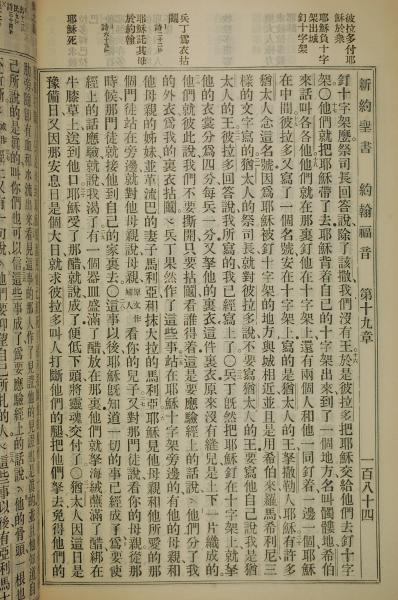 新約聖書 約翰福音 第十九章 百八十四
彼拉多付耶穌於衆
耶穌負十字架出城
釘十字架
兵丁爲衣拈鬮
耶穌託其母於約翰
耶穌死
釘十字架麽祭司長回答說除了該撒我們沒有王於是彼拉多把耶穌交給他們去釘十字
架〇他們就把耶穌帶了去耶穌背着自己的十字架出來到了一個地方名叫髑髏地希伯
來話叫各各他他們就在那裏釘他在十字架上還有兩個人和他一同釘着一邊一個耶穌
在中間彼拉多又寫了一個名號安在十字架上寫的是猶太人的王拏撒勒人耶穌有許多
猶太人念這名號因爲耶穌被釘十字架的地方與城相近並且是用希伯來羅馬希利尼三
樣的文字寫的猶太人的祭司長就對彼拉多說不要寫猶太人的王要寫他自己說我是猶
太人的王彼拉多回答說我所寫的我已經寫上了〇兵丁旣然把耶穌釘在十字架上就拏
他的衣裳分爲四分每兵一分又拏他的裏衣這件裏衣原來沒有縫兒是上下一片織成的
他們就彼此說我們不要撕開只要拈鬮看誰得着這是要應驗經上的話說他們分了我
的外衣爲我的裏衣拈鬮兵丁果然作了這些事站在耶穌十字架旁邊的有他的母親和
他母親的姊妹並革流巴的妻子馬利亞和抹大拉的馬利亞耶穌見他母親和他所愛的那
個門徒站在旁邊就對他母親說母親原文作婦人看你的兒子又對那門徒說看你的母親從那
時候那門徒就接他到自己的家裏去〇這事以後耶穌旣知道一切的事已經成了爲要使
經上的話應驗就說我渴了有一個器皿盛滿了醋放在那裏他們就拏海絨蘸滿了醋綁在
牛膝草上送到他口耶穌受了那醋就說成了便低下頭將靈魂交付了〇猶太人因這日是
豫備日又因那安息日是個大日就求彼拉多叫人打斷他們的腿把他們拏去免得他們的